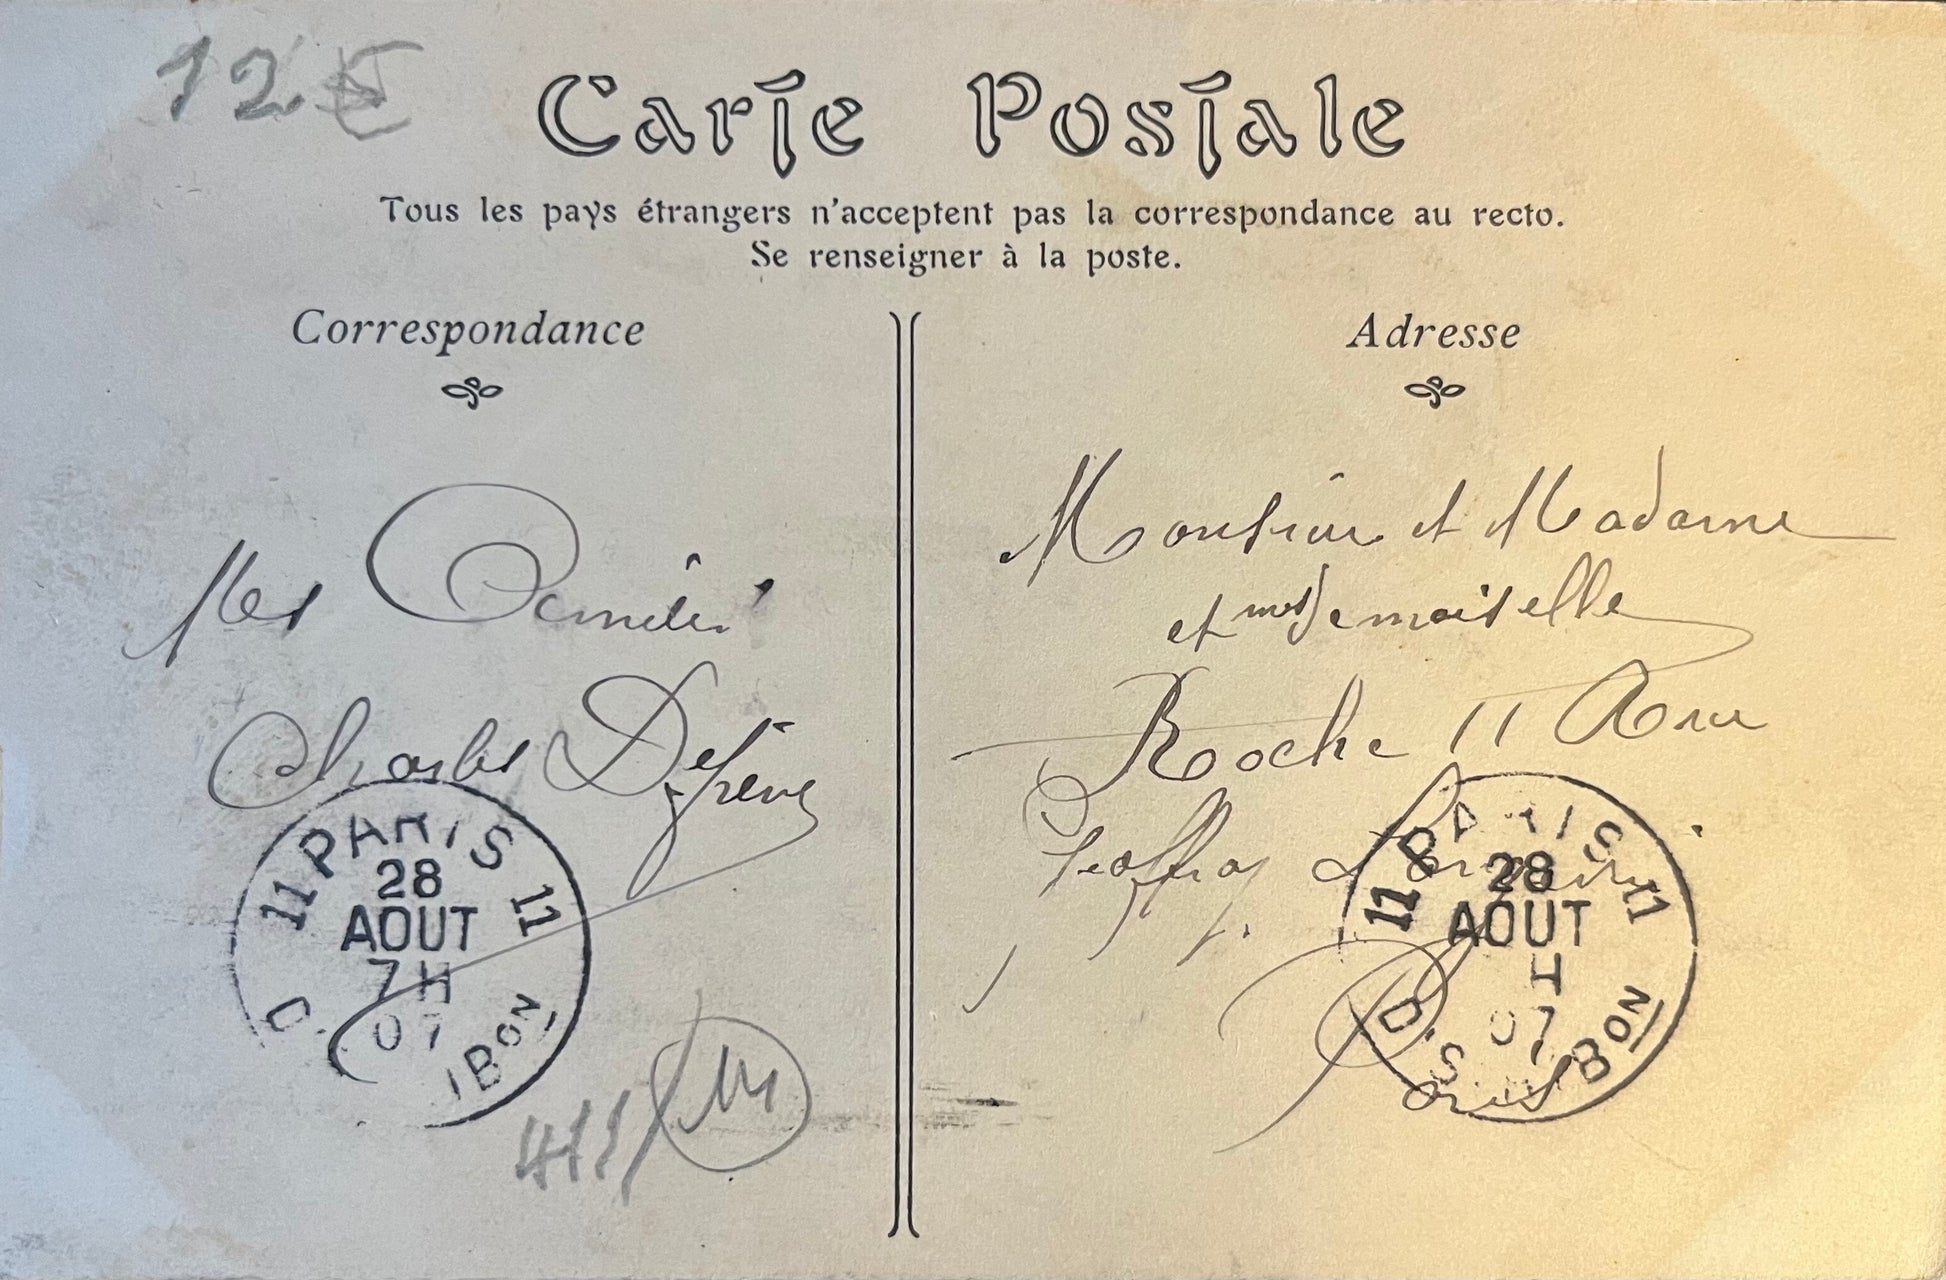 12 €
Carte Postale
Tous les pays étrangers n'acceptent pas la correspondance au recto.
Se renseigner à la poste.
Correspondance
Adresse
Mes Amitiés
Charles
Monsieur et Madame
et Mesdemoiselle
Roche 11 Rue
Geoffroy
Paris
PARIS
11 11
28
AOUT
7 H
07
D. BON
PARIS
11 11
28
AOUT
H
07
D. S. BON